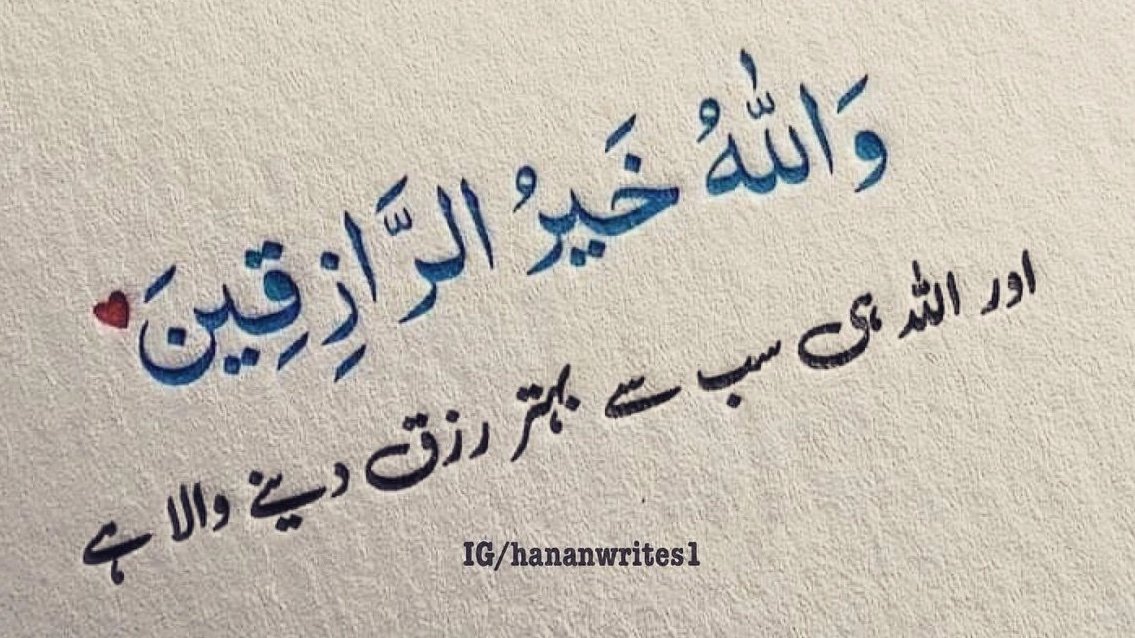 وَاللّٰهُ خَيرُ الرَّازِقِينَ
اور اللہ ہی سب سے بہتر رزق دینے والا ہے
IG/hananwrites1